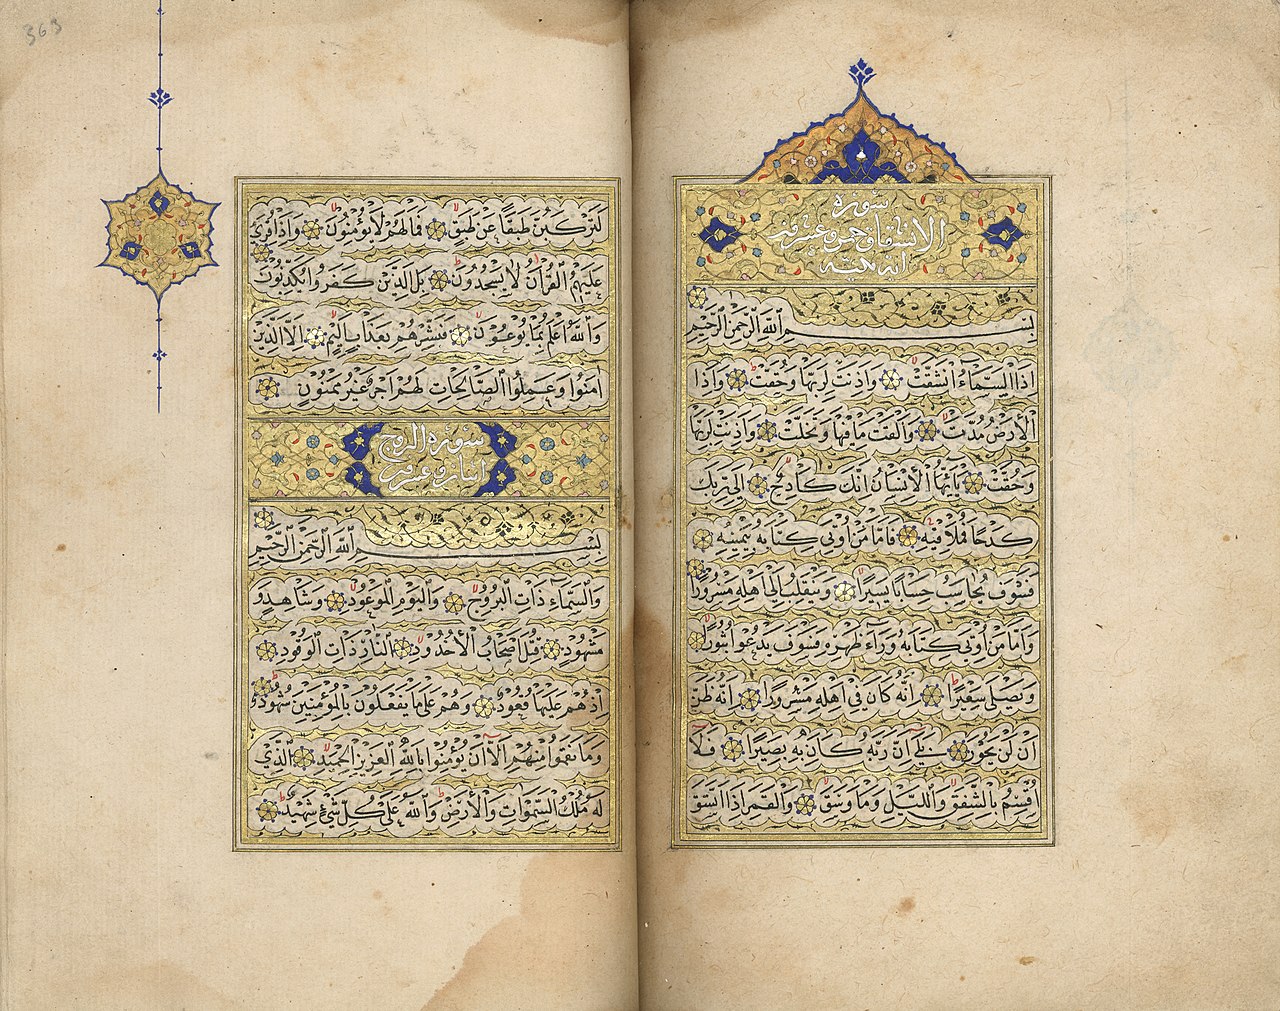 سورة
الانشقاق خمس وعشرون
اية مكية
بِسْمِ اللَّهِ الرَّحْمَنِ الرَّحِيمِ
اِذَا السَّمَاءُ انْشَقَّتْ وَاَذِنَتْ لِرَبِّهَا وَحُقَّتْ وَاِذَا
الْأَرْضُ مُدَّتْ وَاَلْقَتْ مَا فِيهَا وَتَخَلَّتْ وَاَذِنَتْ لِرَبِّهَا
وَحُقَّتْ يَا اَيُّهَا الْاِنْسَانُ اِنَّكَ كَادِحٌ اِلَى رَبِّكَ
كَدْحًا فَمُلَاقِيهِ فَاَمَّا مَنْ اُوتِيَ كِتَابَهُ بِيَمِينِهِ
فَسَوْفَ يُحَاسَبُ حِسَابًا يَسِيرًا وَيَنْقَلِبُ اِلَى اَهْلِهِ مَسْرُورًا
وَاَمَّا مَنْ اُوتِيَ كِتَابَهُ وَرَاءَ ظَهْرِهِ فَسَوْفَ يَدْعُوا ثُبُورًا
وَيَصْلَى سَعِيرًا اِنَّهُ كَانَ فِي اَهْلِهِ مَسْرُورًا اِنَّهُ ظَنَّ
اَنْ لَنْ يَحُورَ بَلَى اِنَّ رَبَّهُ كَانَ بِهِ بَصِيرًا فَلَا
اُقْسِمُ بِالشَّفَقِ وَاللَّيْلِ وَمَا وَسَقَ وَالْقَمَرِ اِذَا اتَّسَقَ
363
لَتَرْكَبُنَّ طَبَقًا عَنْ طَبَقٍ فَمَا لَهُمْ لَا يُؤْمِنُونَ وَاِذَا قُرِئَ
عَلَيْهِمُ الْقُرْآنُ لَا يَسْجُدُونَ بَلِ الَّذِينَ كَفَرُوا يُكَذِّبُونَ
وَاللَّهُ اَعْلَمُ بِمَا يُوعُونَ فَبَشِّرْهُمْ بِعَذَابٍ اَلِيمٍ اِلَّا الَّذِينَ
اٰمَنُوا وَعَمِلُوا الصَّالِحَاتِ لَهُمْ اَجْرٌ غَيْرُ مَمْنُونٍ
سورة البروج
اثنان وعشرون
بِسْمِ اللَّهِ الرَّحْمَنِ الرَّحِيمِ
وَالسَّمَاءِ ذَاتِ الْبُرُوجِ وَالْيَوْمِ الْمَوْعُودِ وَشَاهِدٍ وَ
مَشْهُودٍ قُتِلَ اَصْحَابُ الْأُخْدُودِ النَّارِ ذَاتِ الْوَقُودِ
اِذْ هُمْ عَلَيْهَا قُعُودٌ وَهُمْ عَلَى مَا يَفْعَلُونَ بِالْمُؤْمِنِينَ شُهُودٌ وَ
وَمَا نَقَمُوا مِنْهُمْ اِلَّا اَنْ يُؤْمِنُوا بِاللَّهِ الْعَزِيزِ الْحَمِيدِ الَّذِي
لَهُ مُلْكُ السَّمَوَاتِ وَالْأَرْضِ وَاللَّهُ عَلَى كُلِّ شَيْءٍ شَهِيدٌ